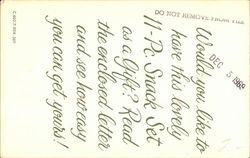 DO NOT REMOVE FROM FILE
DEC 5 1969
Would you like to
have this lovely
11-Pc. Snack Set
as a Gift? Read
the enclosed letter
and see how easy
you can get yours!